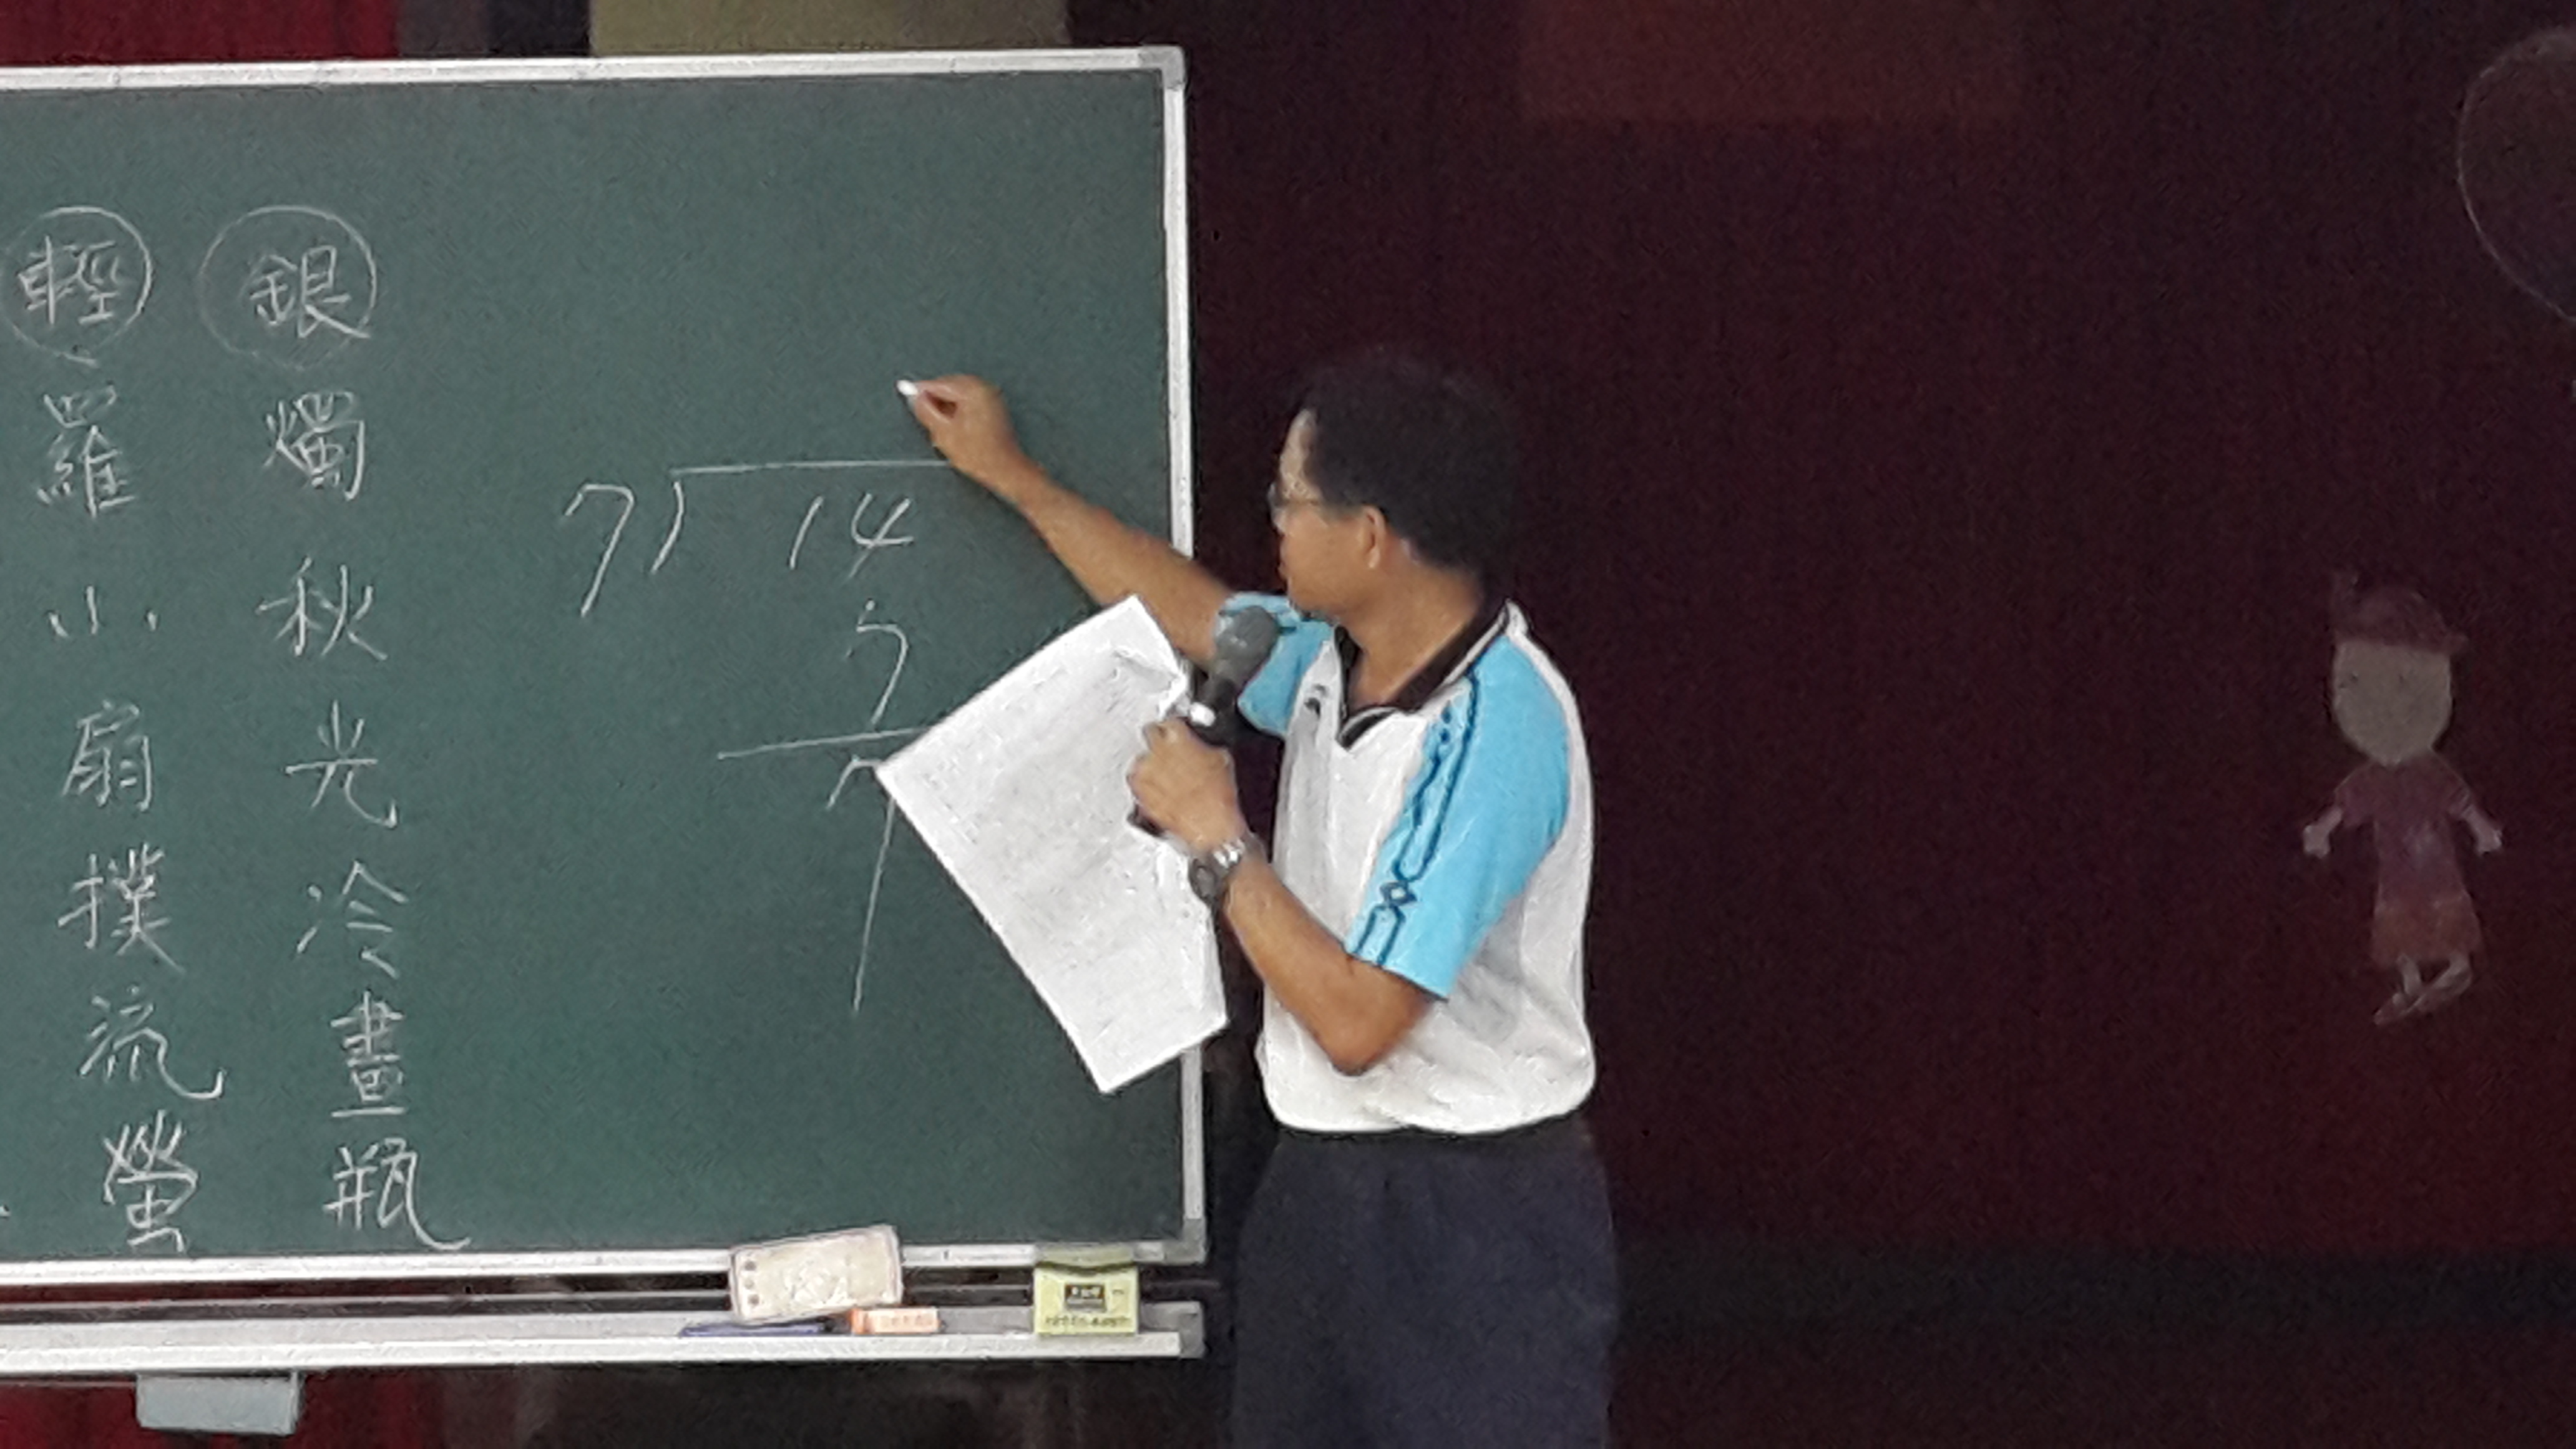 銀燭秋光冷畫瓶
輕羅小扇撲流螢
7) 14
7
7